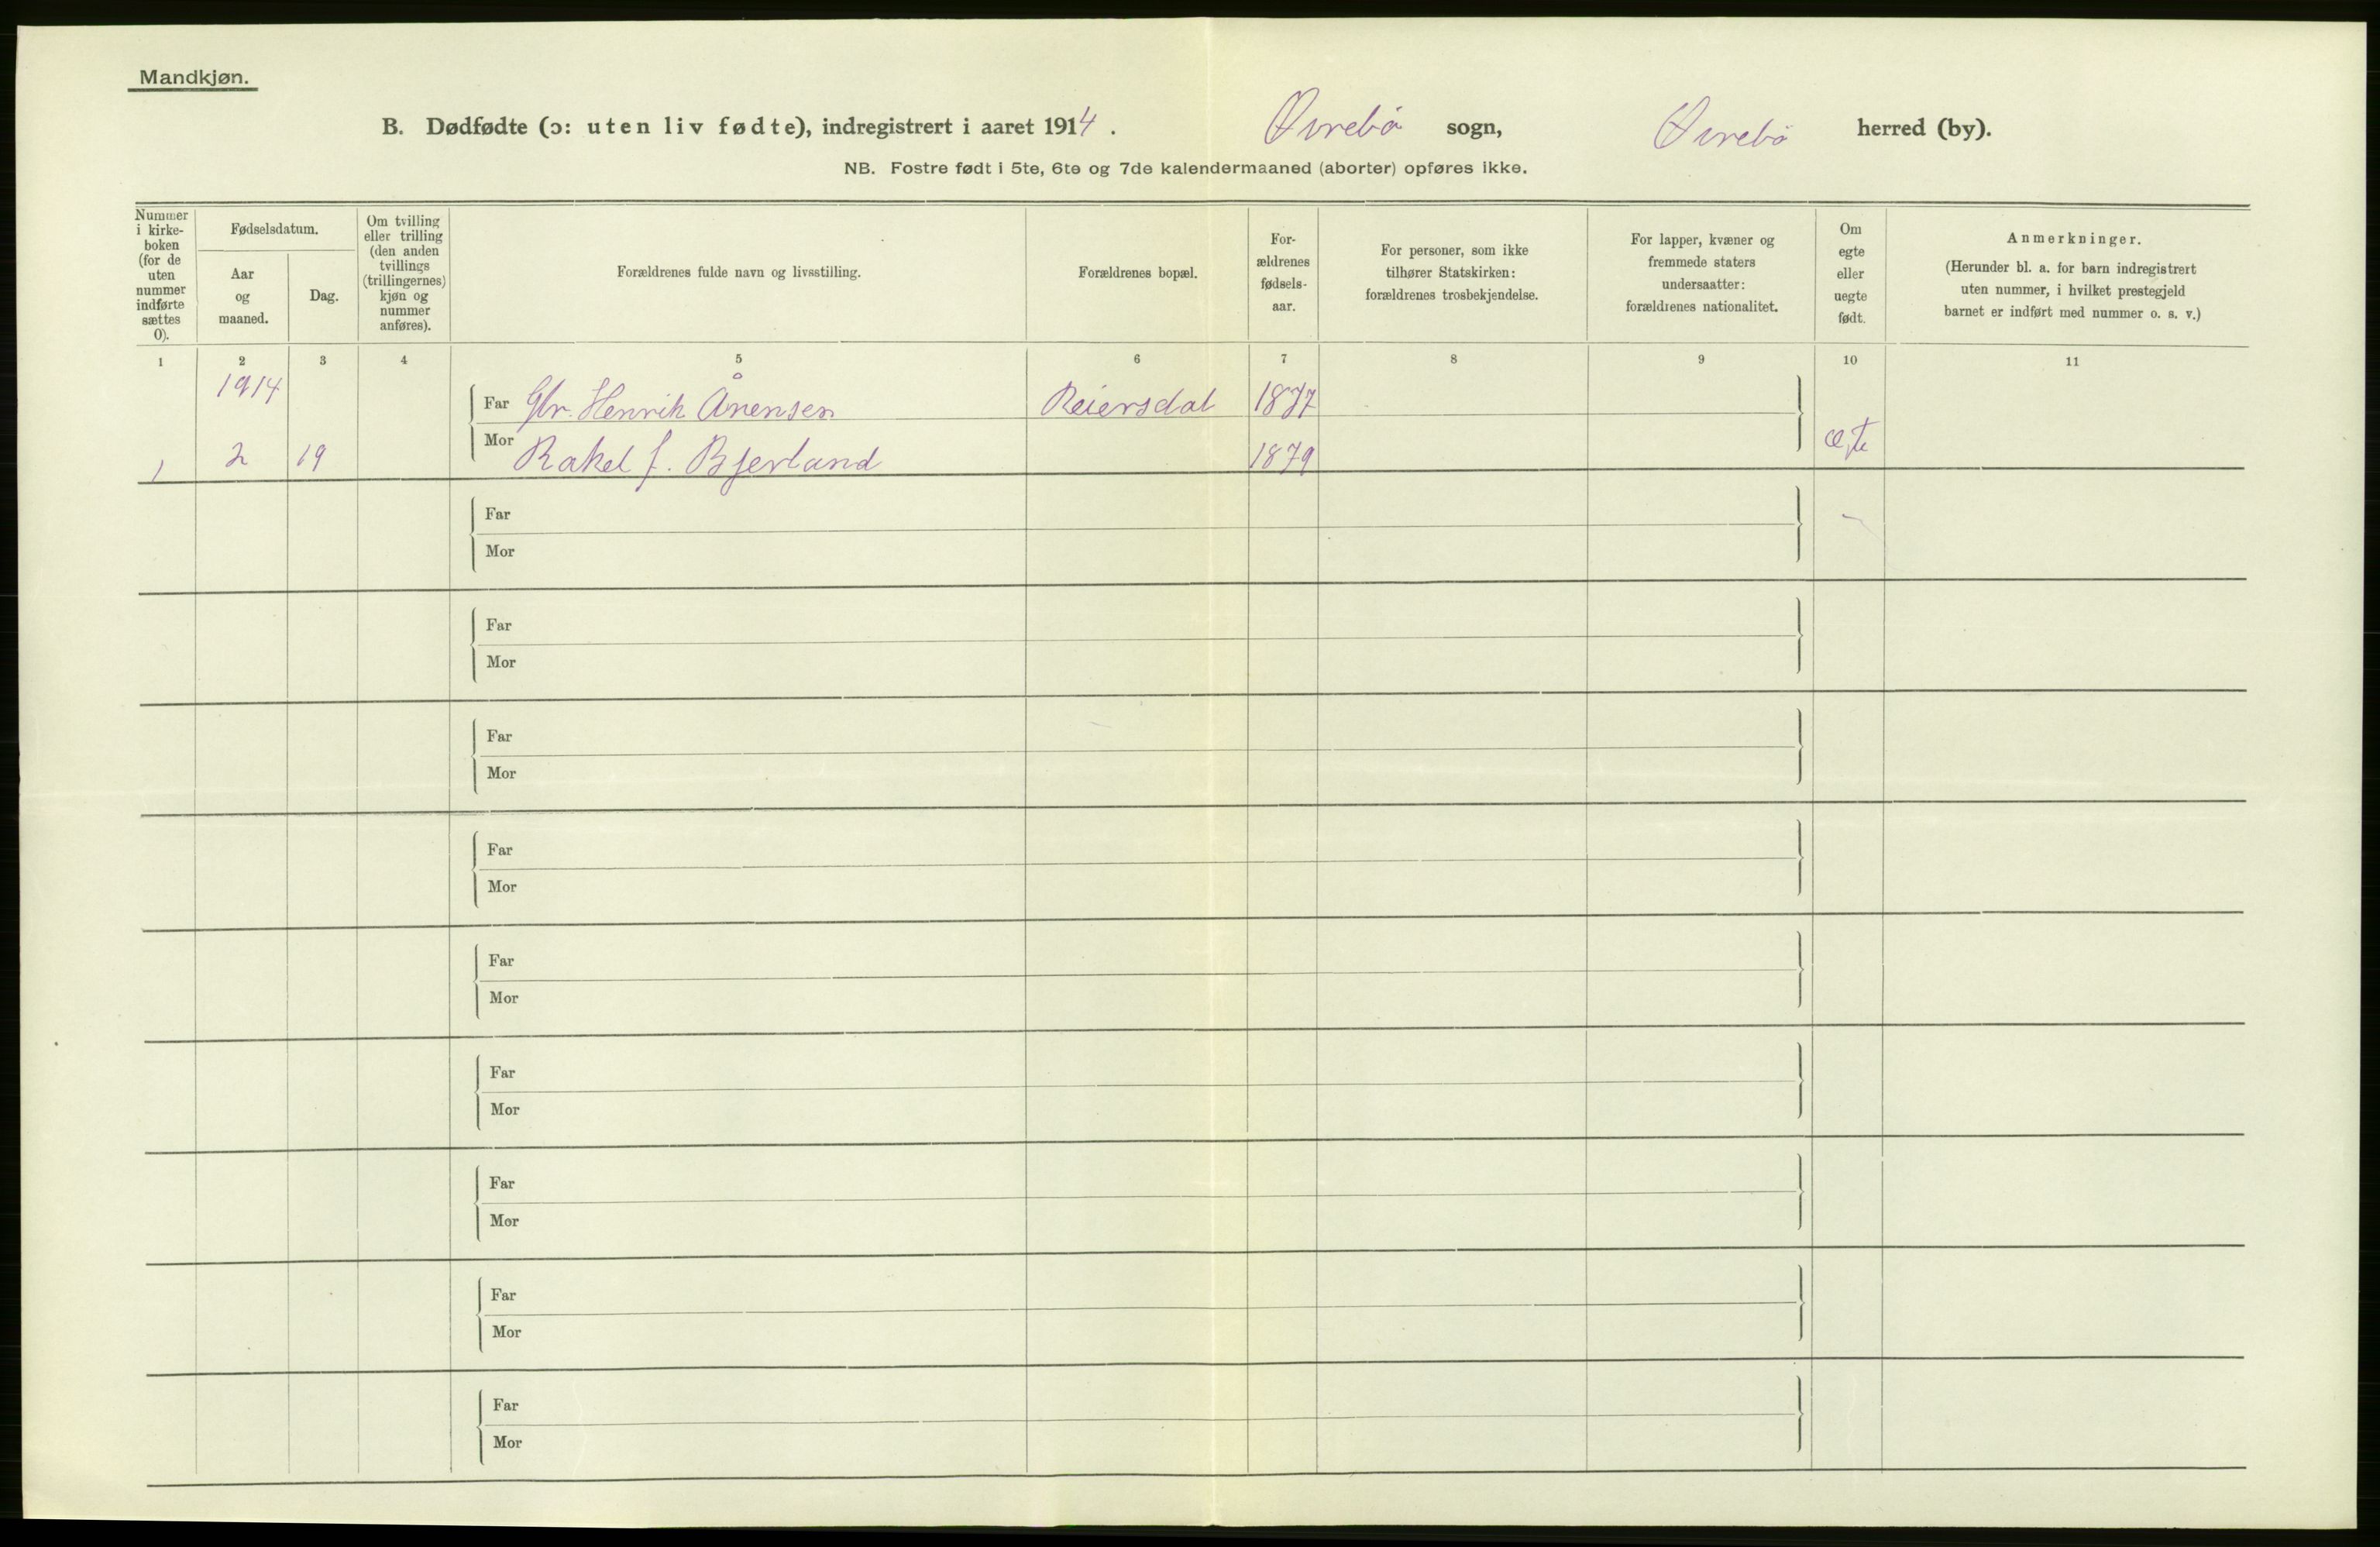 Mandkjøn.
B. Dødfødte (ɔ: uten liv fødte), indregistrert i aaret 1914. Øvrebø sogn, Øvrebø herred (by).
NB. Fostre født i 5te, 6te og 7de kalendermaaned (aborter) opføres ikke.
Nummer
i kirke-
boken
(for de
uten
nummer
indførte
sættes
0).
Fødselsdatum.
Aar
og
maaned.
Dag.
Om tvilling
eller trilling
(den anden
tvillings
(trillingernes)
kjøn og
nummer
anføres).
Forældrenes fulde navn og livsstilling.
Forældrenes bopæl.
For-
ældrenes
fødsels-
aar.
For personer, som ikke
tilhører Statskirken:
forældrenes trosbekjendelse.
For lapper, kvæner og
fremmede staters
undersaatter:
forældrenes nationalitet.
Om
egte
eller
uegte
født.
Anmerkninger.
(Herunder bl. a. for barn indregistrert
uten nummer, i hvilket prestegjeld
barnet er indført med nummer o. s. v.)
1 2 3 4 5 6 7 8 9 10 11
1914
Far Gbr. Henrik Ånensen Reiersdal 1877
1 2 19 Mor Rakel f. Bjerland 1879 ægte
Far
Mor
Far
Mor
Far
Mor
Far
Mor
Far
Mor
Far
Mor
Far
Mor
Far
Mor
Far
Mor